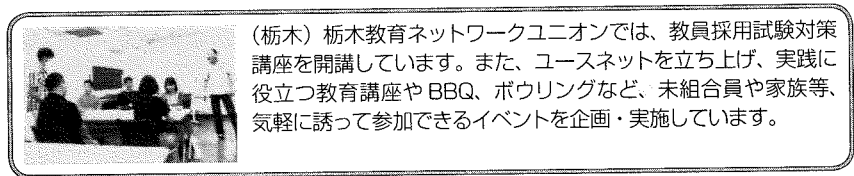 (栃木) 栃木教育ネットワークユニオンでは、教員採用試験対策
講座を開講しています。また、ユースネットを立ち上げ、実践に
役立つ教育講座や BBQ、ボウリングなど、未組合員や家族等、
気軽に誘って参加できるイベントを企画・実施しています。